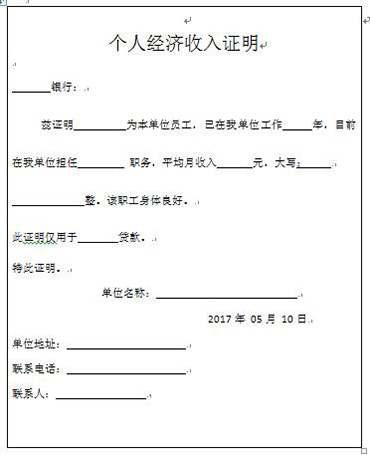 个人经济收入证明
______银行：
兹证明________为本单位员工，已在我单位工作_____年，目前
在我单位担任________ 职务，平均月收入______元，大写：_____
____________整。该职工身体良好。
此证明仅用于_______贷款。
特此证明。
单位名称：________________________
2017 年 05 月 10 日
单位地址：____________________
联系电话：____________________
联系人：_______________